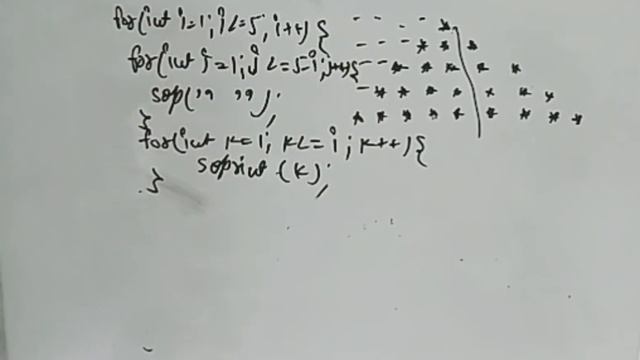 for(int i=1; i<=5; i++) { - - - - *
for(int j=1; j<=5-i; j++){ - - - * * *
sop(" "); - - * * * * *
} - * * * * * * *
for(int k=1; k<=i; k++){ * * * * * * * * *
soprint (k);
}